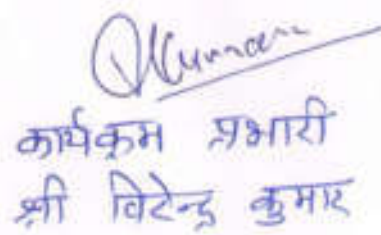 कार्यक्रम प्रभारी
श्री विटेन्द्र कुमार